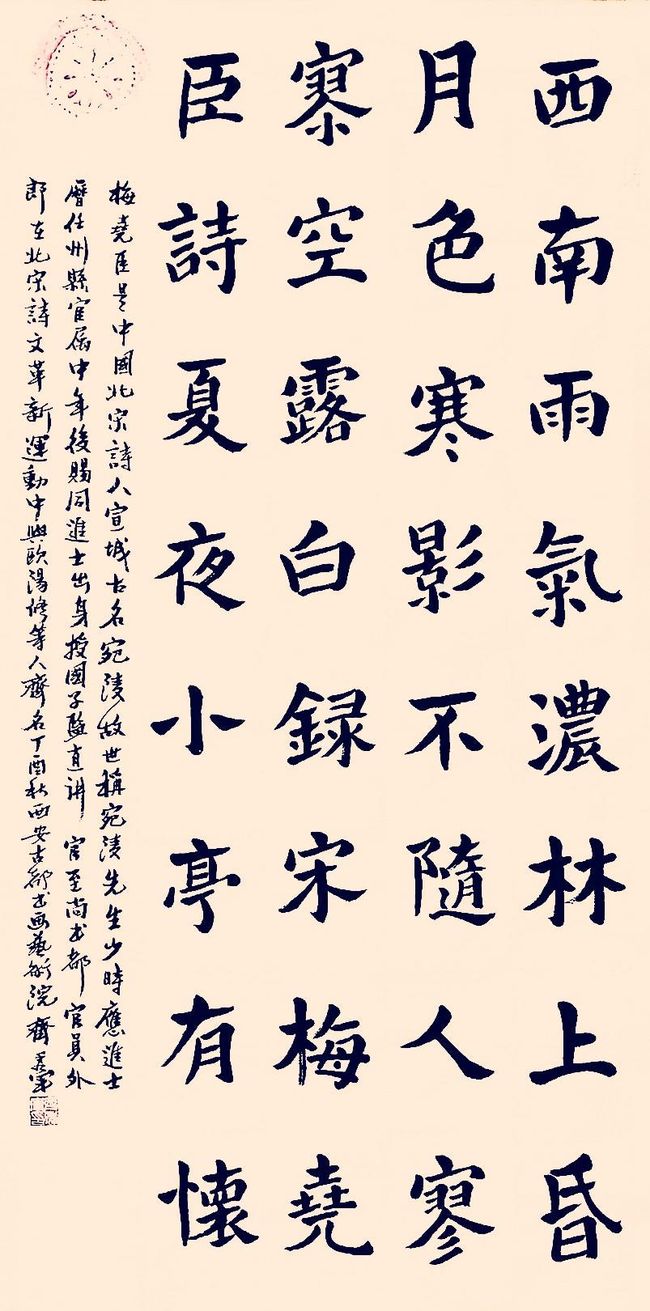 西南雨氣濃林上昏
月色寒影不隨人寥
寥空露白録宋梅堯
臣詩夏夜小亭有懷
梅堯臣是中國北宋詩人宣城古名宛陵故世稱宛陵先生少時應進士
曆任州縣官屬中年後賜同進士出身授國子監直講官至尚书都官員外
郎在北宋詩文革新運動中與歐陽修等人齊名丁酉秋西安古都书画藝術院齊